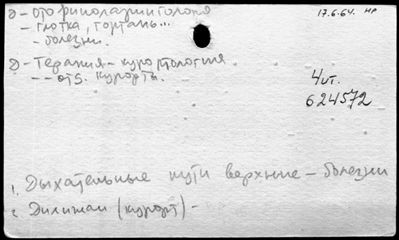 Э - оториноларингология
- глотка, гортань...
- болезни.
17.6.64. НР
Э - Терапия - курортология.
-- отд. курорты.
Чит.
624572
1. Дыхательные пути верхние - болезни
2. Дилижан (курорт) -